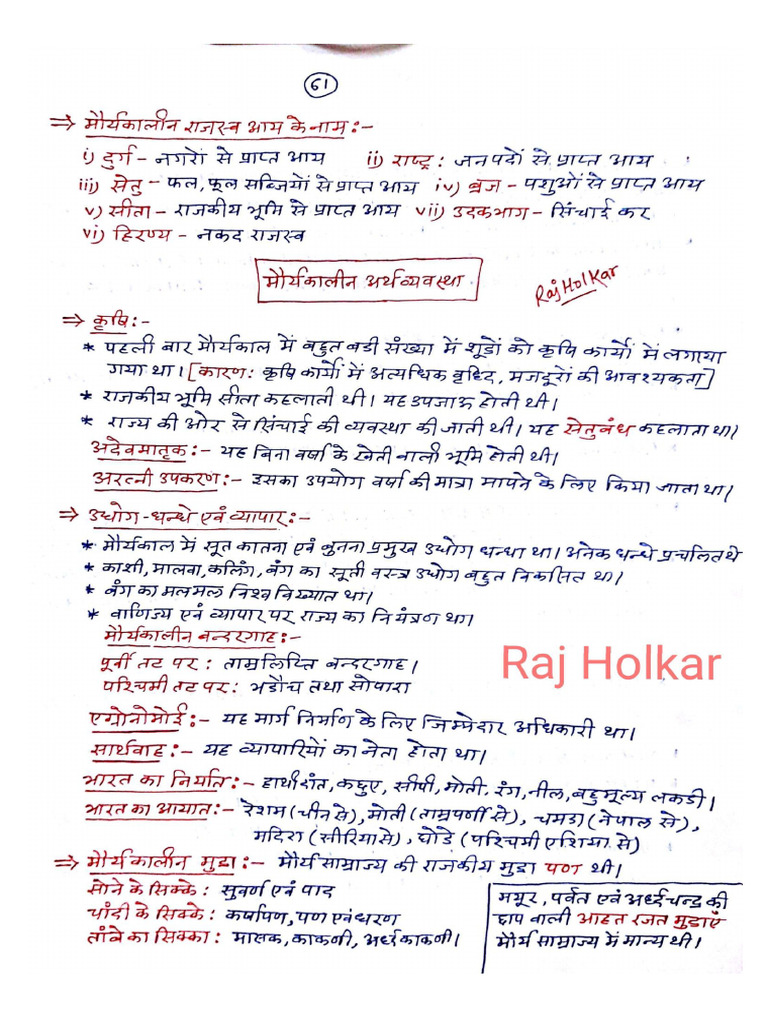 61
⇒ मौर्यकालीन राजस्व आय के नाम:-
i) दुर्ग - नगरों से प्राप्त आय ii) राष्ट्र: जनपदों से प्राप्त आय
iii) सेतु - फल, फूल सब्जियों से प्राप्त आय iv) व्रज - पशुओं से प्राप्त आय
v) सीता - राजकीय भूमि से प्राप्त आय vii) उदकभाग - सिंचाई कर
vi) हिरण्य - नकद राजस्व
मौर्यकालीन अर्थव्यवस्था
Raj Holkar
⇒ कृषि:-
* पहली बार मौर्यकाल में बहुत बडी संख्या में शूद्रों को कृषि कार्यो में लगाया
गया था। [कारण: कृषि कार्यों में अत्यधिक वृध्दि, मजदूरों की आवश्यकता]
* राजकीय भूमि सीता कहलाती थी। यह उपजाऊ होती थी।
* राज्य की ओर से सिंचाई की व्यवस्था की जाती थी। यह सेतुबंध कहलाता था।
अदेवमातृक:- यह बिना वर्षा के खेती वाली भूमि होती थी।
अरत्नी उपकरण:- इसका उपयोग वर्षा की मात्रा मापने के लिए किया जाता था।
⇒ उद्योग-धन्धे एवं व्यापार:-
* मौर्यकाल में सूत कातना एवं बुनना प्रमुख उद्योग धन्धा था। अनेक धन्धे प्रचलित थे
* काशी, मालवा, कलिंग, बंग का सूती वस्त्र उद्योग बहुत विकसित था।
* बंग का मलमल विश्व विख्यात था।
* वाणिज्य एवं व्यापार पर राज्य का नियंत्रण था।
मौर्यकालीन बन्दरगाह:-
पूर्वी तट पर: ताम्रलिप्ति बन्दरगाह।
पश्चिमी तट पर: भडौच तथा सोपारा
Raj Holkar
एग्रोनोमोई:- यह मार्ग निर्माण के लिए जिम्मेदार अधिकारी था।
सार्थवाह:- यह व्यापारियों का नेता होता था।
भारत का निर्यात:- हाथीदांत, कछुए, सीपी, मोती, रंग, नील, बहुमूल्य लकडी।
भारत का आयात:- रेशम (चीन से), मोती (ताम्रपर्णी से), चमडा (नेपाल से),
मदिरा (सीरिया से), घोडे (पश्चिमी एशिया से)
⇒ मौर्य कालीन मुद्रा:- मौर्य साम्राज्य की राजकीय मुद्रा पण थी।
सोने के सिक्के: सुवर्ण एवं पाद
चांदी के सिक्के: कर्षापण, पण एवं धरण
तांबे का सिक्का: माषक, काकनी, अर्ध्दकाकनी।
मयूर, पर्वत एवं अर्ध्दचन्द्र की
छाप वाली आहत रजत मुद्राएं
मौर्य साम्राज्य में मान्य थी।